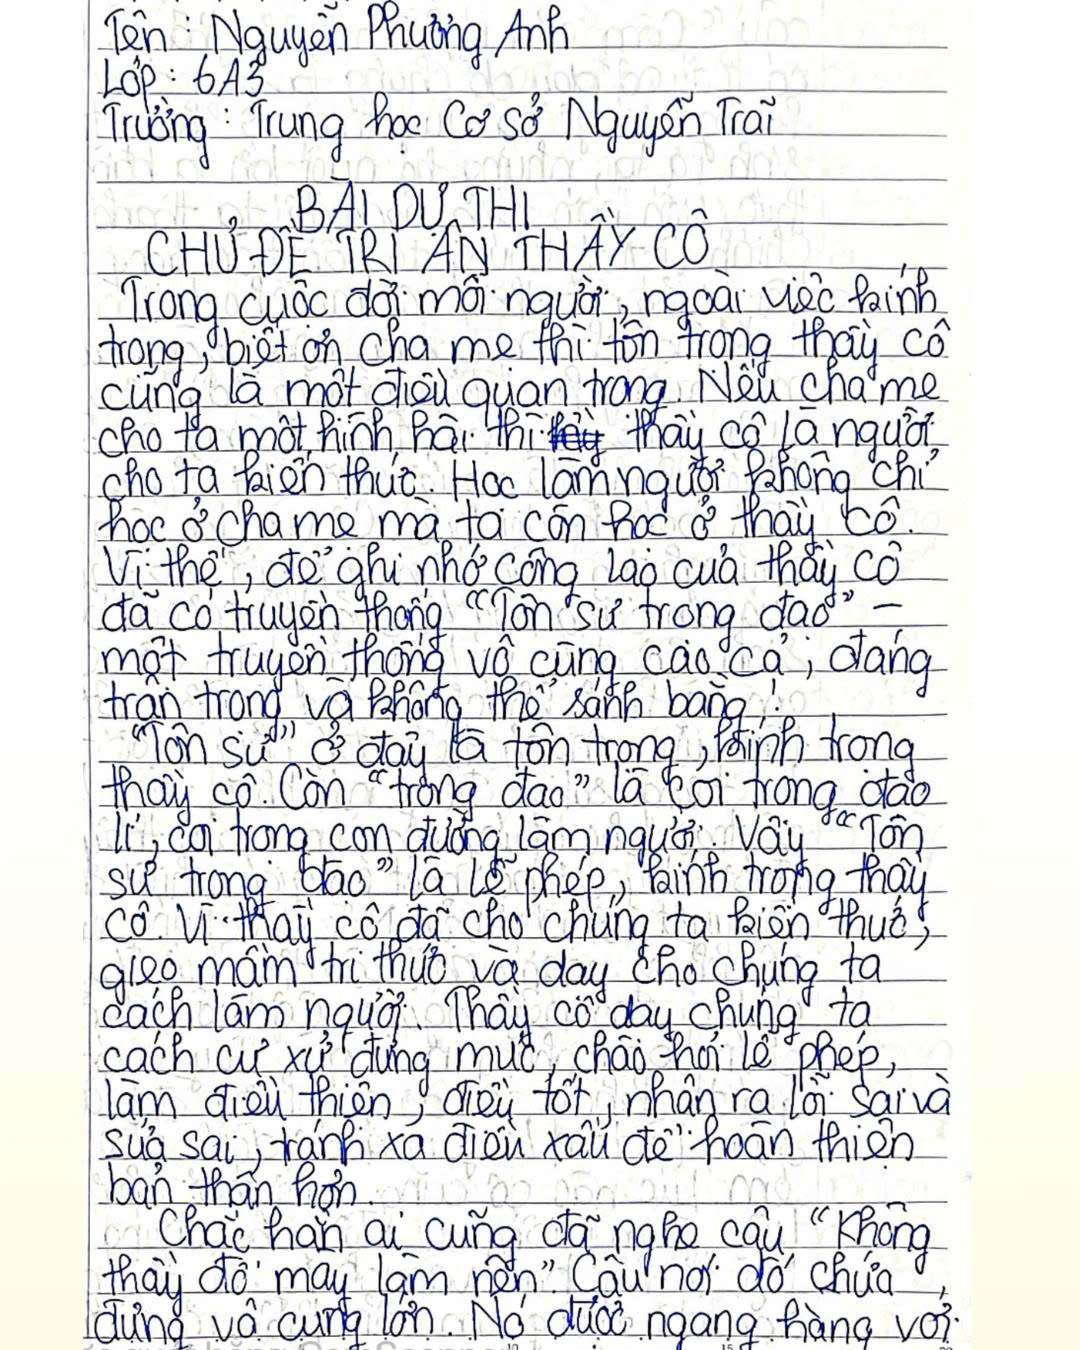 Tên: Nguyễn Phương Anh
Lớp: 6A3
Trường: Trung học Cơ sở Nguyễn Trãi
BÀI DỰ THI
CHỦ ĐỀ TRI ÂN THẦY CÔ
Trong cuộc đời mỗi người, ngoài việc kính
trọng, biết ơn cha mẹ thì tôn trọng thầy cô
cũng là một điều quan trọng. Nếu cha mẹ
cho ta một hình hài thì thầy cô là người
cho ta kiến thức. Học làm người không chỉ
học ở cha mẹ mà ta còn học ở thầy cô.
Vì thế, để ghi nhớ công lao của thầy cô
đã có truyền thống "Tôn sư trọng đạo" –
một truyền thống vô cùng cao cả, đáng
trân trọng và không thể sánh bằng!
"Tôn sư" ở đây là tôn trọng, kính trọng
thầy cô. Còn "trọng đạo" là coi trọng đạo
lí, coi trọng con đường làm người. Vậy "Tôn
sư trọng đạo" là lễ phép, kính trọng thầy
cô. Vì thầy cô đã cho chúng ta kiến thức,
gieo mầm tri thức và dạy cho chúng ta
cách làm người. Thầy cô dạy chúng ta
cách cư xử đúng mực, chào hỏi lễ phép,
làm điều thiện, điều tốt, nhận ra lỗi sai và
sửa sai, tránh xa điều xấu để hoàn thiện
bản thân hơn.
Chắc hẳn ai cũng đã nghe câu "Không
thầy đố mày làm nên". Câu nói đó chứa
đựng vô cùng lớn. Nó được ngang hàng với